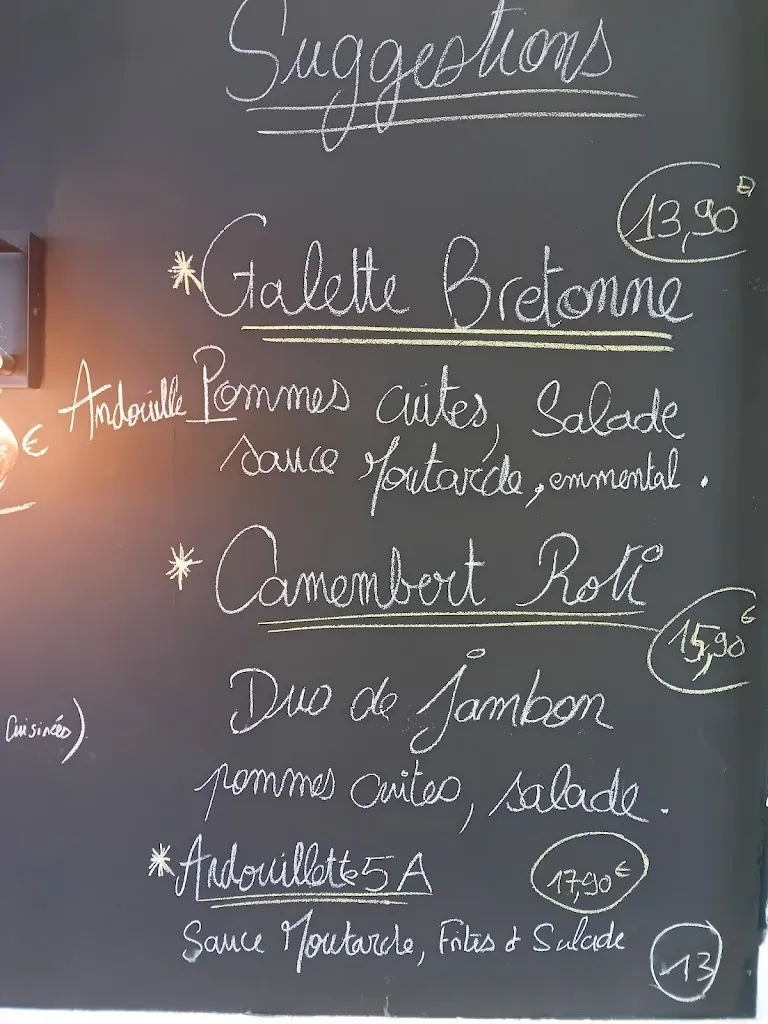 Suggestions
13,90€
* Galette Bretonne
Andouille Pommes cuites, Salade
€
sauce Moutarde, emmental.
* Camembert Roti
15,90€
Duo de jambon
Cuisinées)
pommes cuites, salade.
* Andouillette 5A 17,90€
Sauce Moutarde, Frites & Salade
13